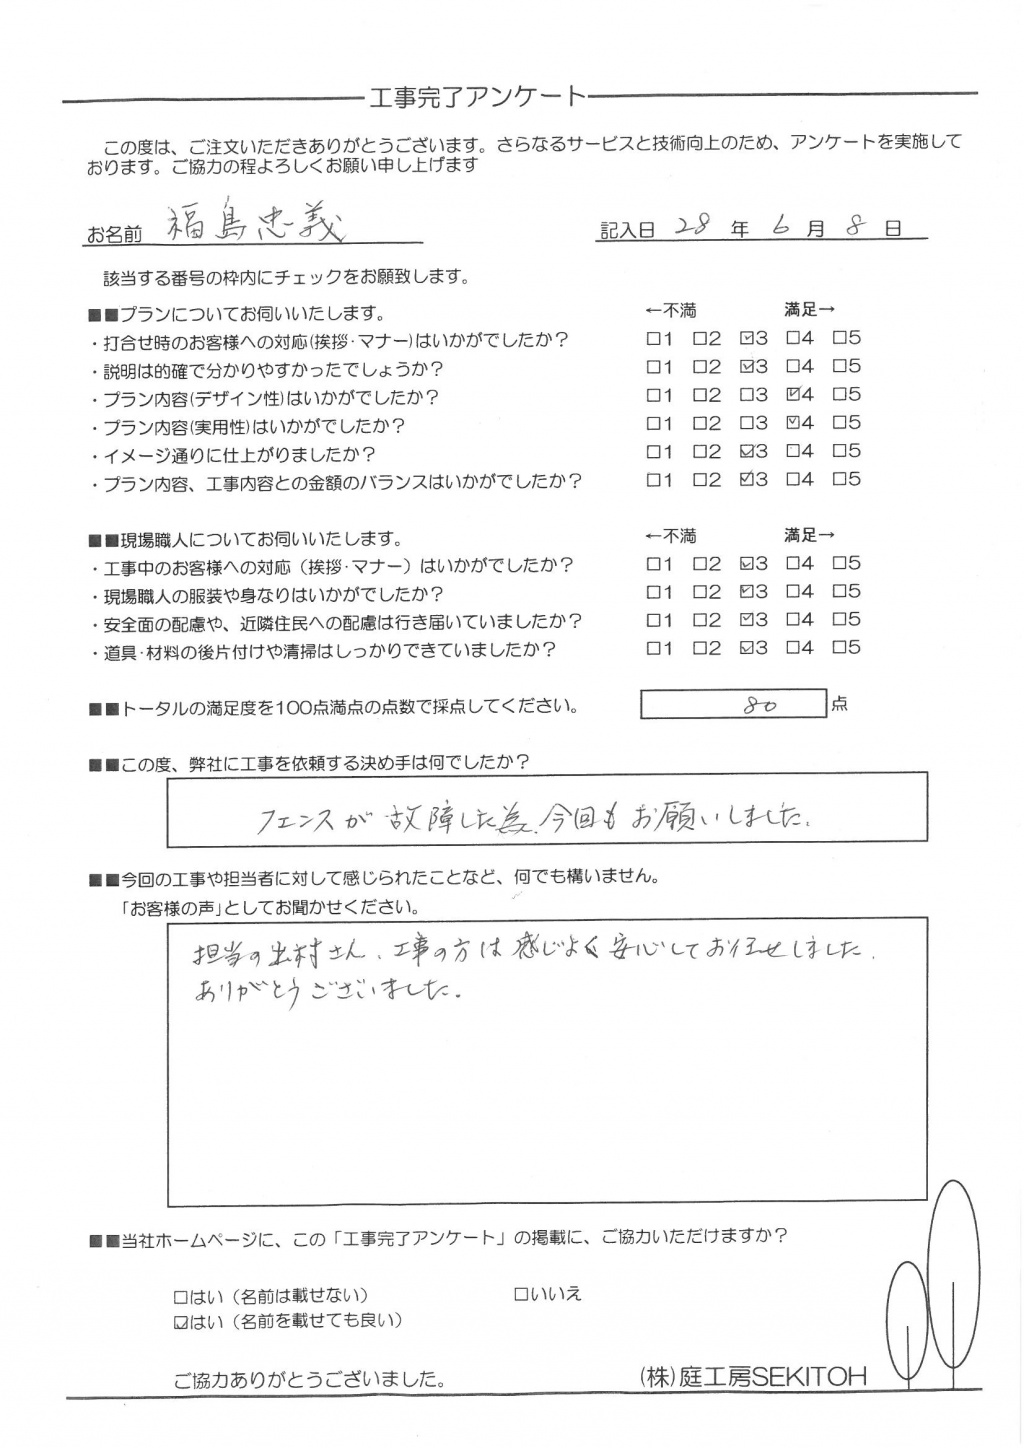 工事完了アンケート
この度は、ご注文いただきありがとうございます。さらなるサービスと技術向上のため、アンケートを実施して
おります。ご協力の程よろしくお願い申し上げます
お名前 福島忠義 記入日 28 年 6 月 8 日
該当する番号の枠内にチェックをお願致します。
■■プランについてお伺いいたします。 ←不満 満足→
・打合せ時のお客様への対応(挨拶・マナー)はいかがでしたか? □1 □2 ☑3 □4 □5
・説明は的確で分かりやすかったでしょうか? □1 □2 ☑3 □4 □5
・プラン内容(デザイン性)はいかがでしたか? □1 □2 □3 ☑4 □5
・プラン内容(実用性)はいかがでしたか? □1 □2 □3 ☑4 □5
・イメージ通りに仕上がりましたか? □1 □2 ☑3 □4 □5
・プラン内容、工事内容との金額のバランスはいかがでしたか? □1 □2 ☑3 □4 □5
■■現場職人についてお伺いいたします。 ←不満 満足→
・工事中のお客様への対応（挨拶・マナー）はいかがでしたか? □1 □2 ☑3 □4 □5
・現場職人の服装や身なりはいかがでしたか? □1 □2 ☑3 □4 □5
・安全面の配慮や、近隣住民への配慮は行き届いていましたか? □1 □2 ☑3 □4 □5
・道具・材料の後片付けや清掃はしっかりできていましたか? □1 □2 ☑3 □4 □5
■■トータルの満足度を100点満点の点数で採点してください。 80 点
■■この度、弊社に工事を依頼する決め手は何でしたか?
フェンスが故障した為、今回もお願いしました。
■■今回の工事や担当者に対して感じられたことなど、何でも構いません。
「お客様の声」としてお聞かせください。
担当の出村さん、工事の方は感じよく安心してお任せしました。
ありがとうございました。
■■当社ホームページに、この「工事完了アンケート」の掲載に、ご協力いただけますか?
□はい（名前は載せない） □いいえ
☑はい（名前を載せても良い）
ご協力ありがとうございました。 (株)庭工房SEKITOH